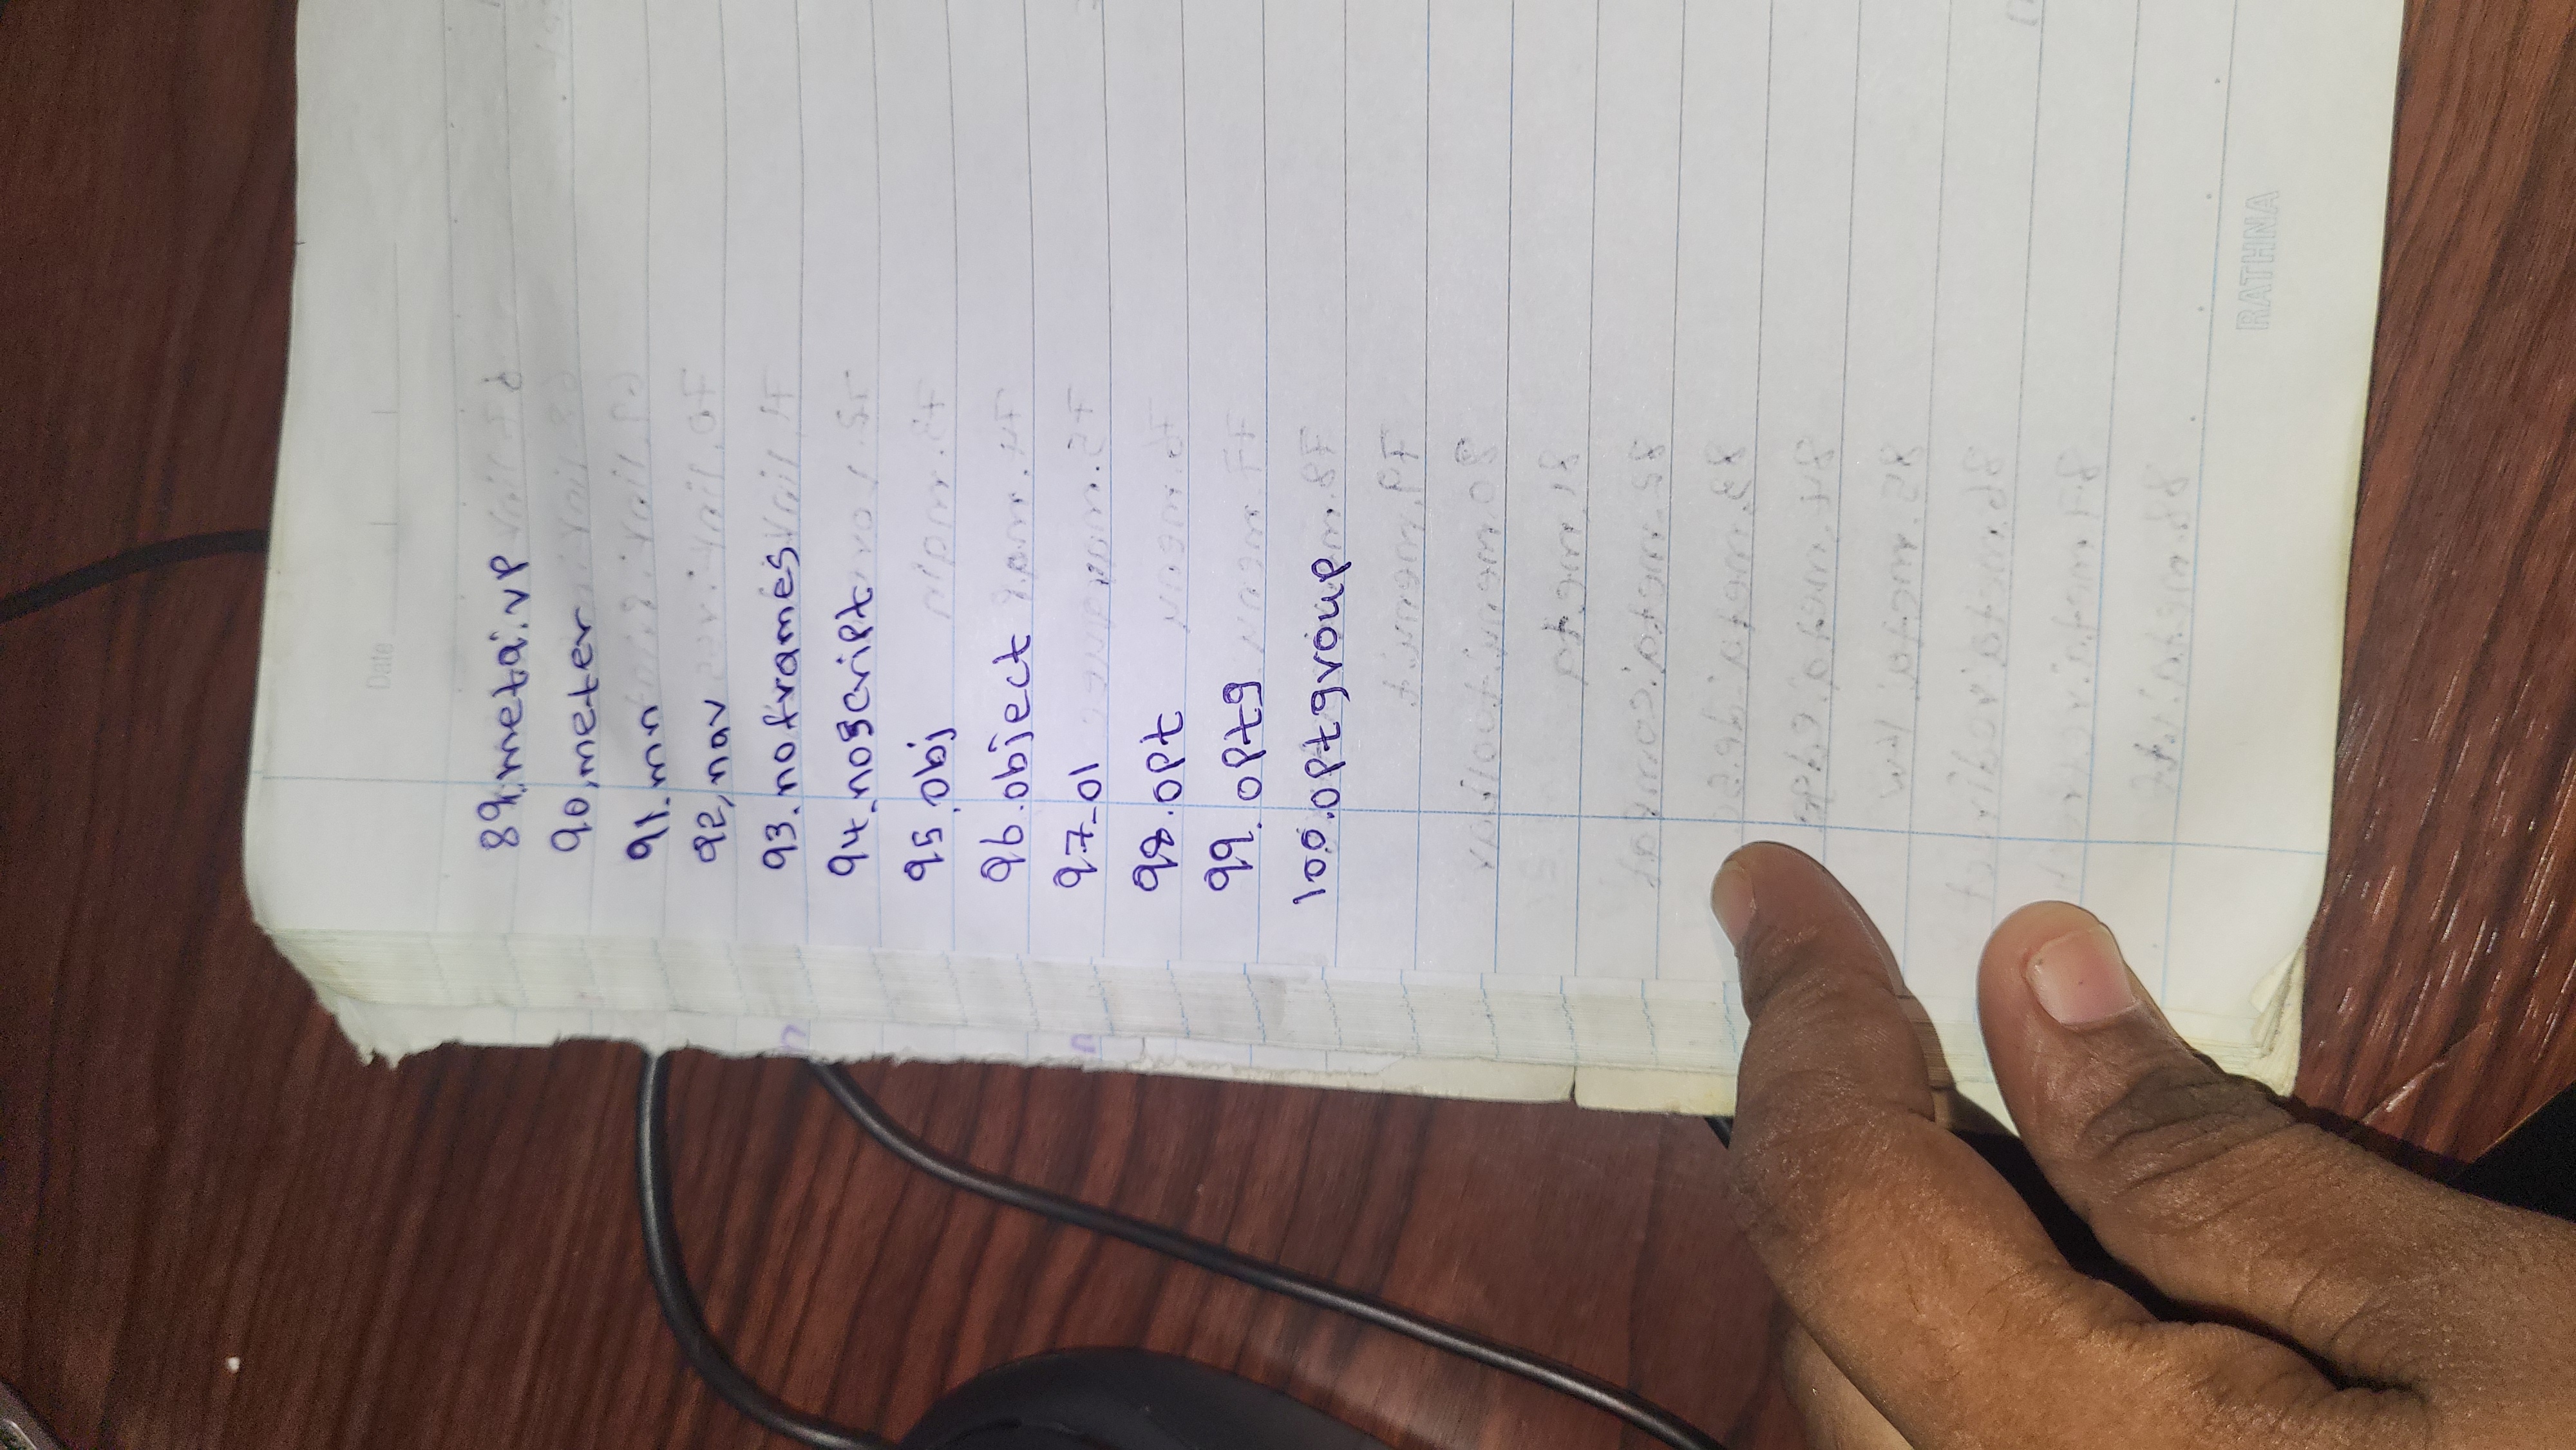 Date
89. meta:vp
90. meter
91. mn
92. nav
93. noframes
94. noscript
95. obj
96. object
97. ol
98. opt
99. optg
100. optgroup
RATHNA